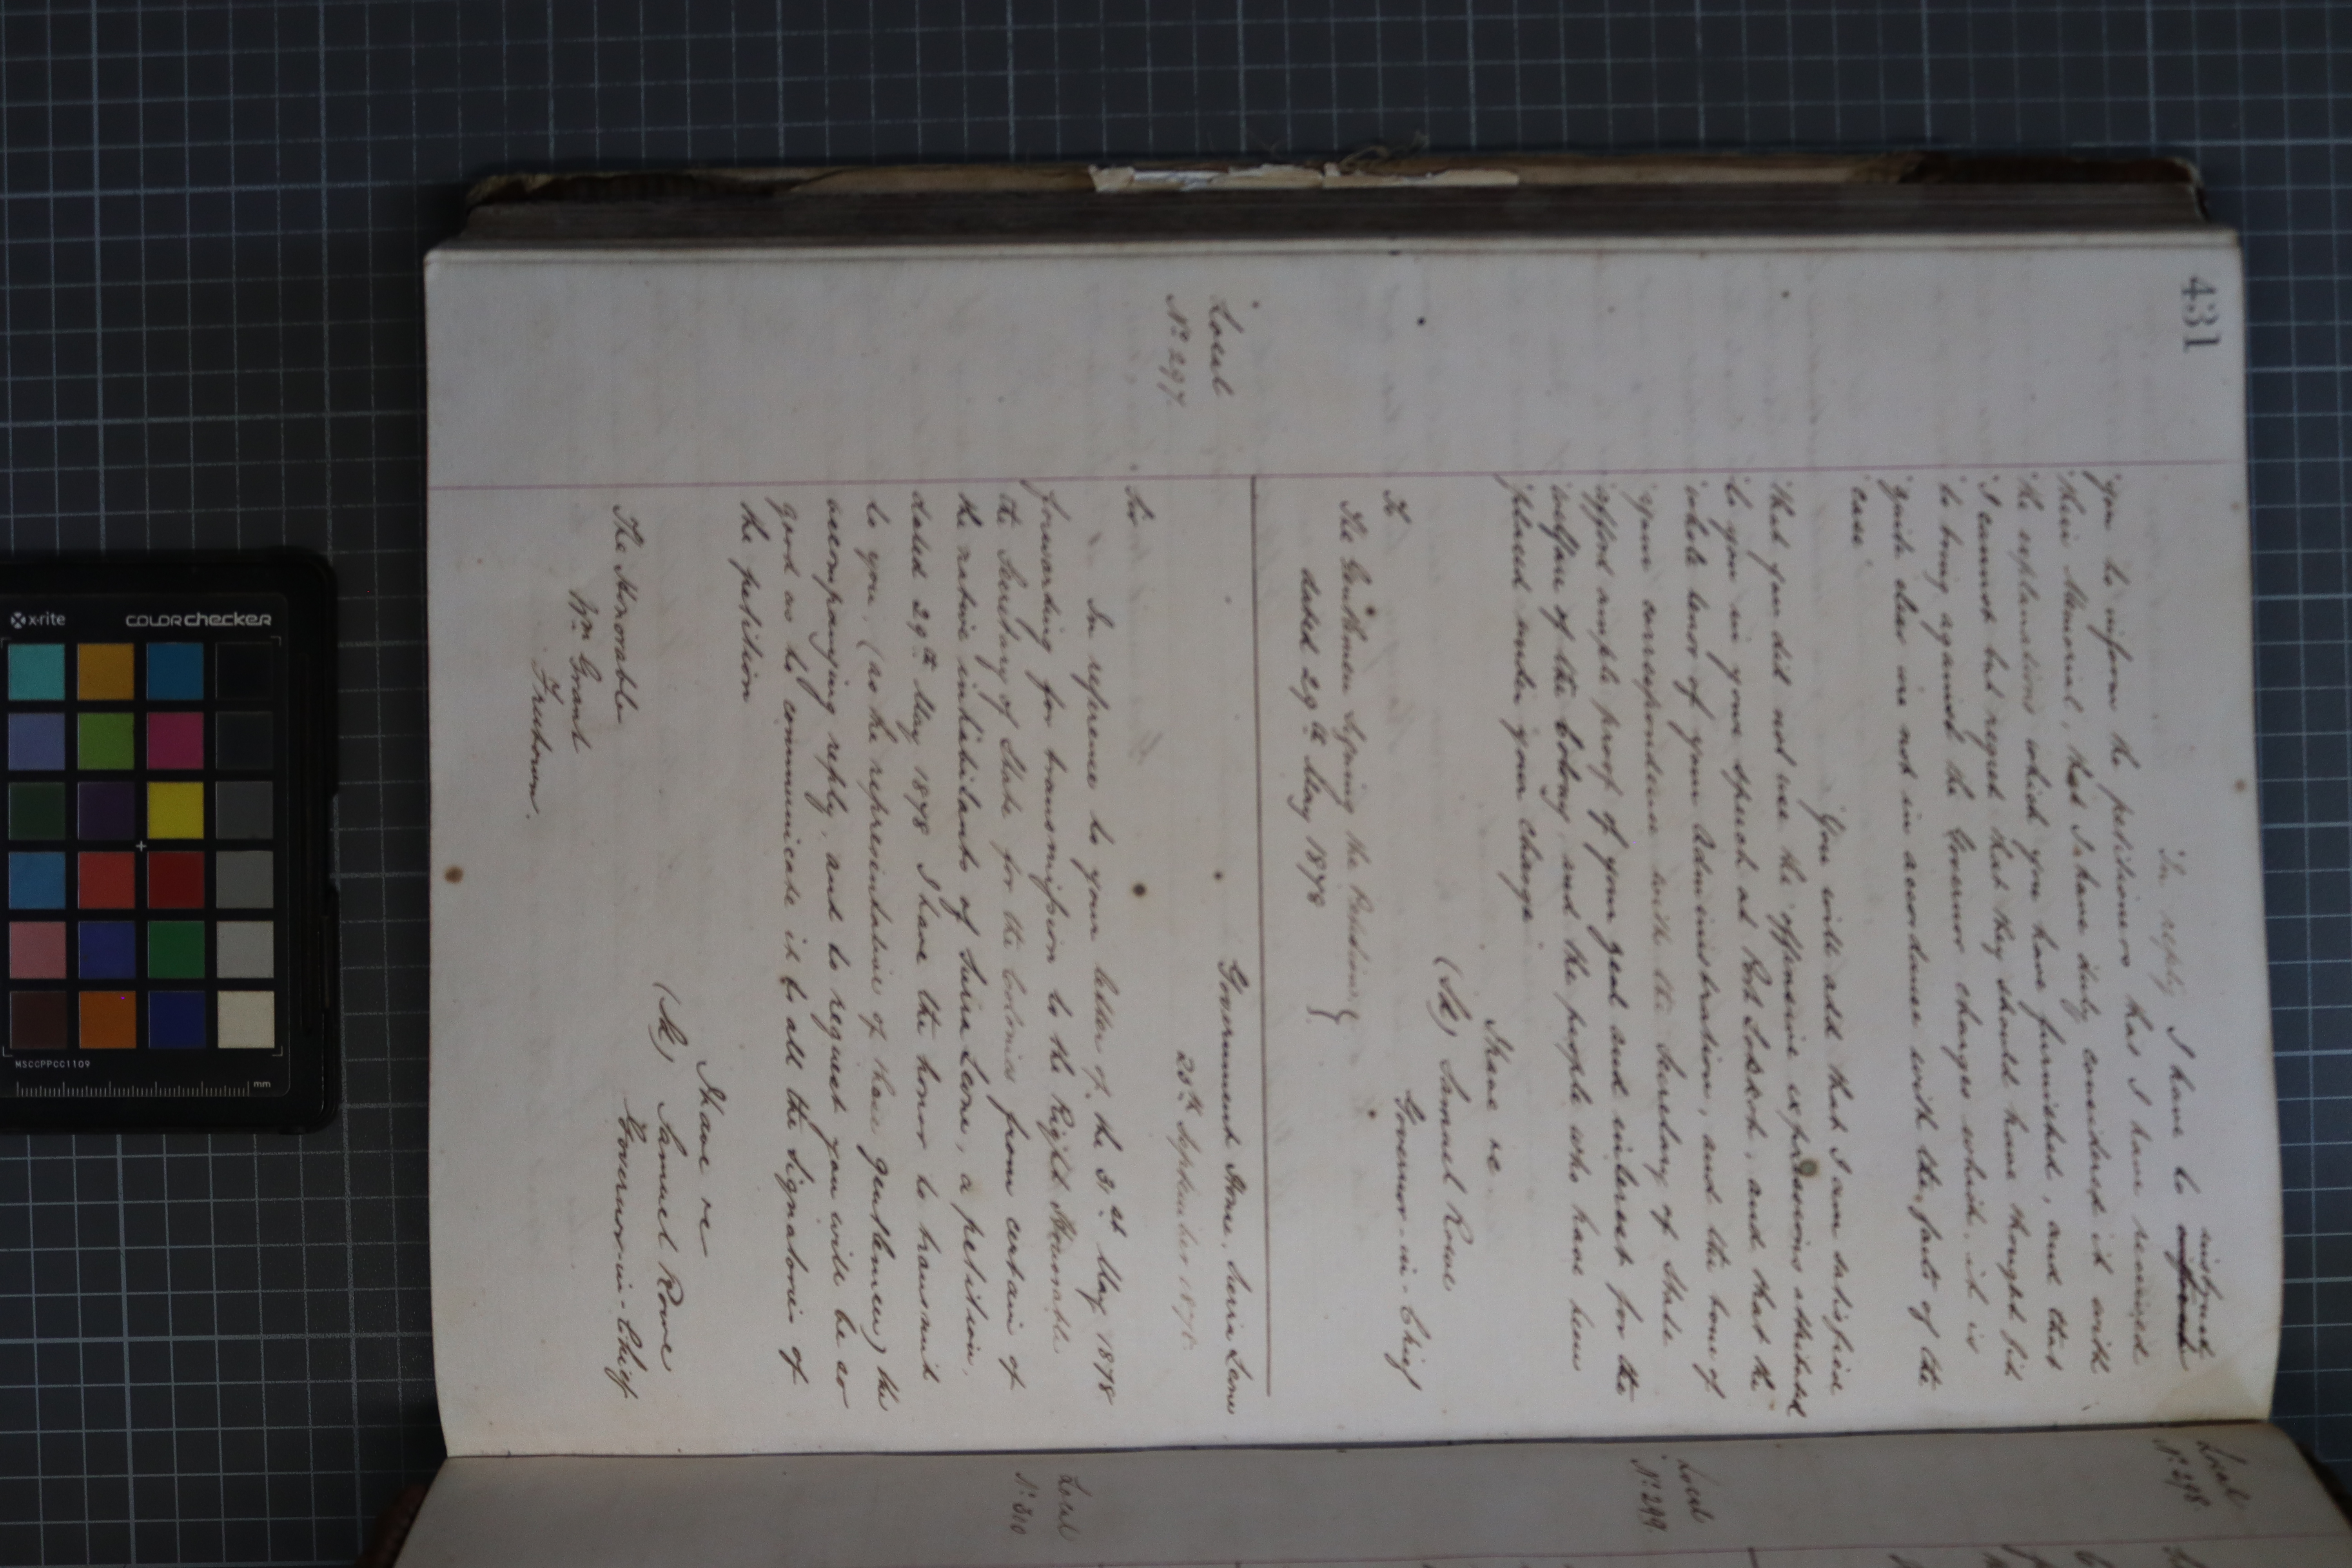 431
"In reply I have to instruct inform
"you to inform the petitioners that I have received
"their Memorial, that I have duly considered it with
"the explanations which you have furnished, and that
"I cannot but regret that they should have thought fit
"to bring against the Governor charges which it is
"quite clear are not in accordance with the facts of the
"case"
"You will add that I am satisfied
"that you did not use the offensive expressions attributed
"to you in your speech at Port Lokkoh, and that the
"whole tenor of your Administration, and the tone of
"your correspondence with the Secretary of State
"afford ample proof of your zeal and interest for the
"welfare of the Colony and the people who have been
"placed under your charge
I have &c.
(Sd) Samuel Rowe
Governor-in-Chief
To
The Gentlemen Signing the Petition }
dated 29th May 1878
Local
No 297.
Government House, Sierra Leone
20th September 1878.
Sir
In reference to your letter of the 31st May 1878
forwarding for transmission to the Right Honorable
the Secretary of State for the Colonies from certain of
the native inhabitants of Sierra Leone, a petition,
dated 29th May 1878 I have the honor to transmit
to you, (as the representative of these gentlemen) the
accompanying reply, and to request you will be so
good as to communicate it to all the signatories of
the petition
I have &c
(Sd) Samuel Rowe
Governor-in-Chief
The Honorable
Wm Grant
Freetown.
Local
No 298.
Local
No 299.
Local
No 300
x-rite
COLORchecker
MSCCPPCC1109
mm